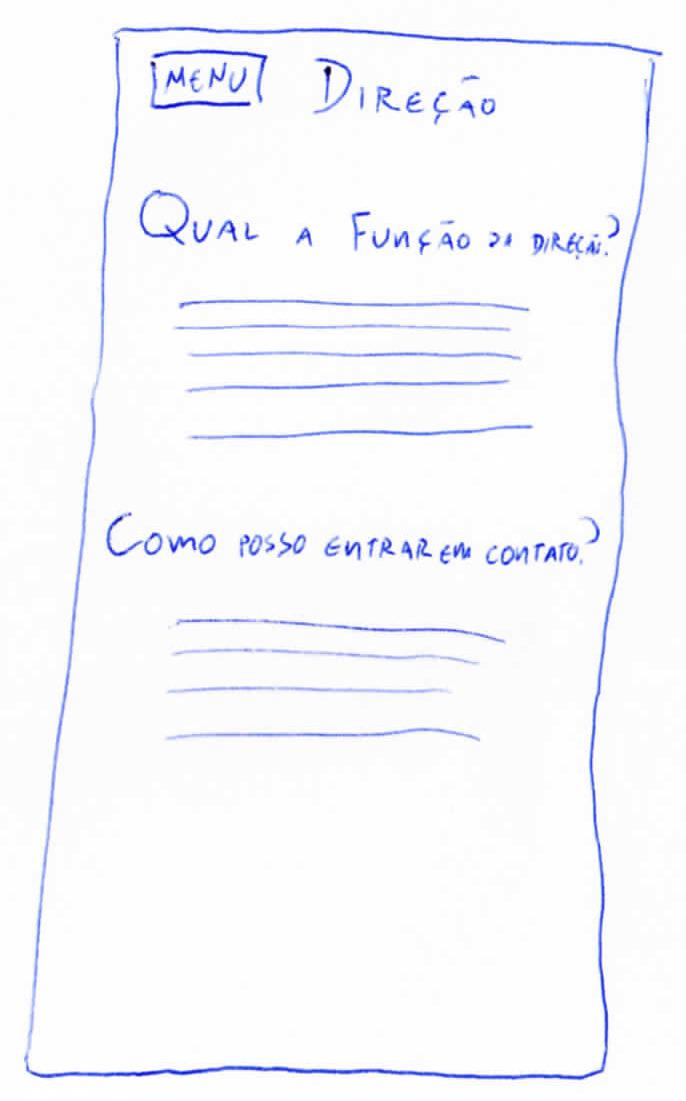 MENU Direção
Qual a Função da direção?
Como posso entrar em contato?